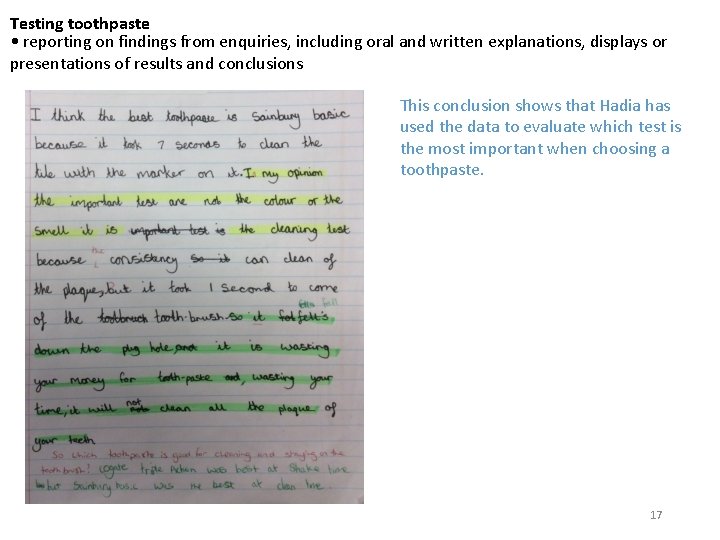 Testing toothpaste
• reporting on findings from enquiries, including oral and written explanations, displays or
presentations of results and conclusions
This conclusion shows that Hadia has
used the data to evaluate which test is
the most important when choosing a
toothpaste.
I think the best toothpaste is Sainbury basic
because it took 7 seconds to clean the
tile with the marker on it. In my opinion
the important test are not the colour or the
smell it is important test is the cleaning test
the
because consistency so it can clean of
the plaque, but it took 1 second to come
fall
of the toothbruch tooth-brush so it
down the plug hole, and it is wasting
your money for tooth-paste and, wasting your
not
time, it will clean all the plaque of
your teeth.
So which toothpaste is good for cleaning and staying on the
toothbrush? Colgate Triple Action was best at Shake time
but Sainbury basic was the best at clean time.
17